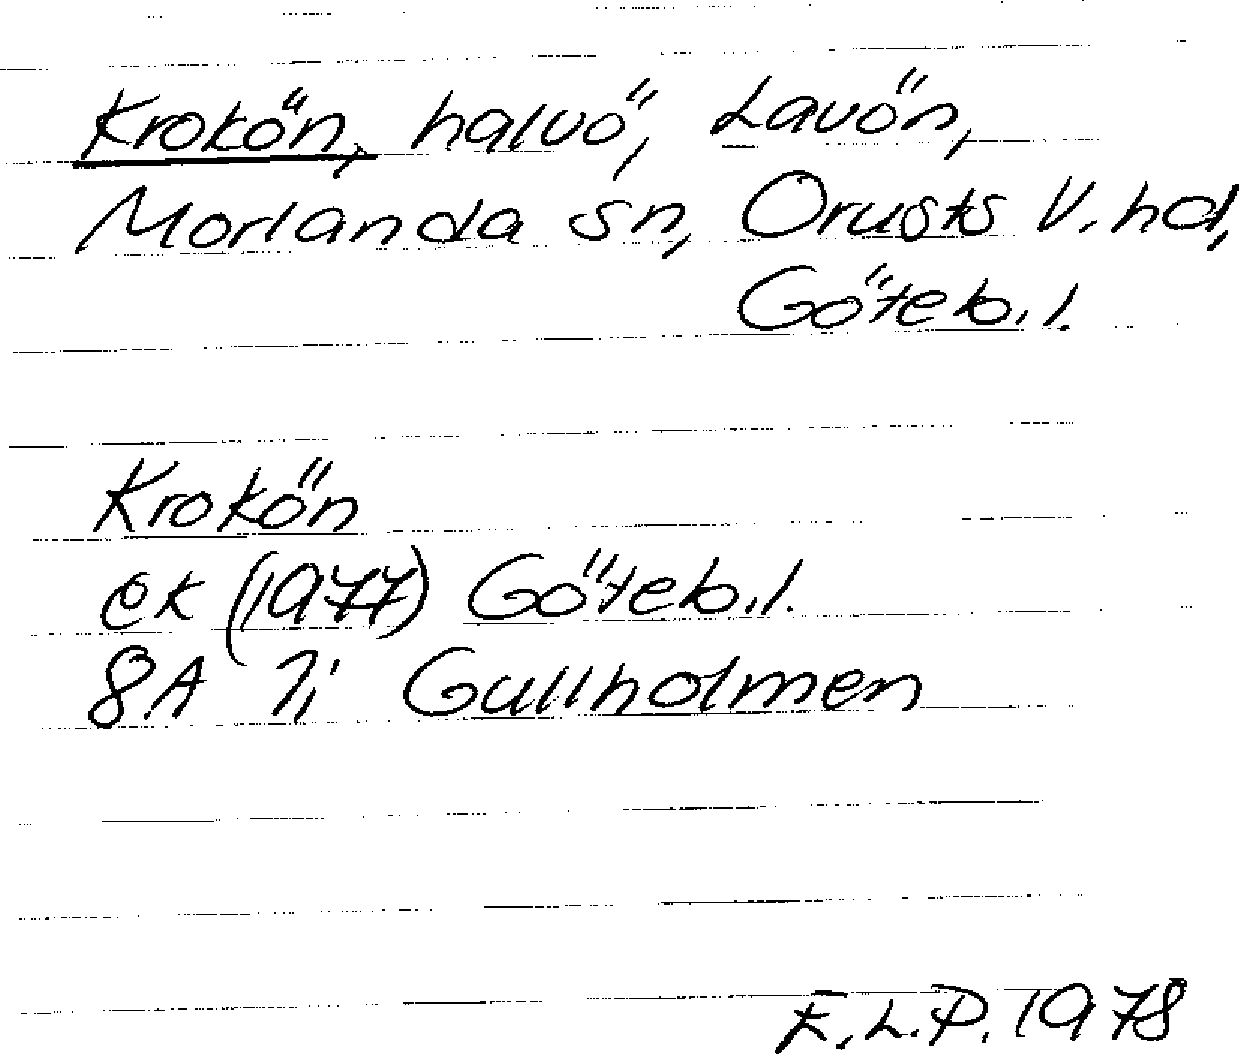 Krokön, halvö, Lavön,
Morlanda sn, Orusts V. hd,
Göteb. l.
Krokön
ek (1977) Göteb. l.
8A 7i Gullholmen
E.L.P. 1978